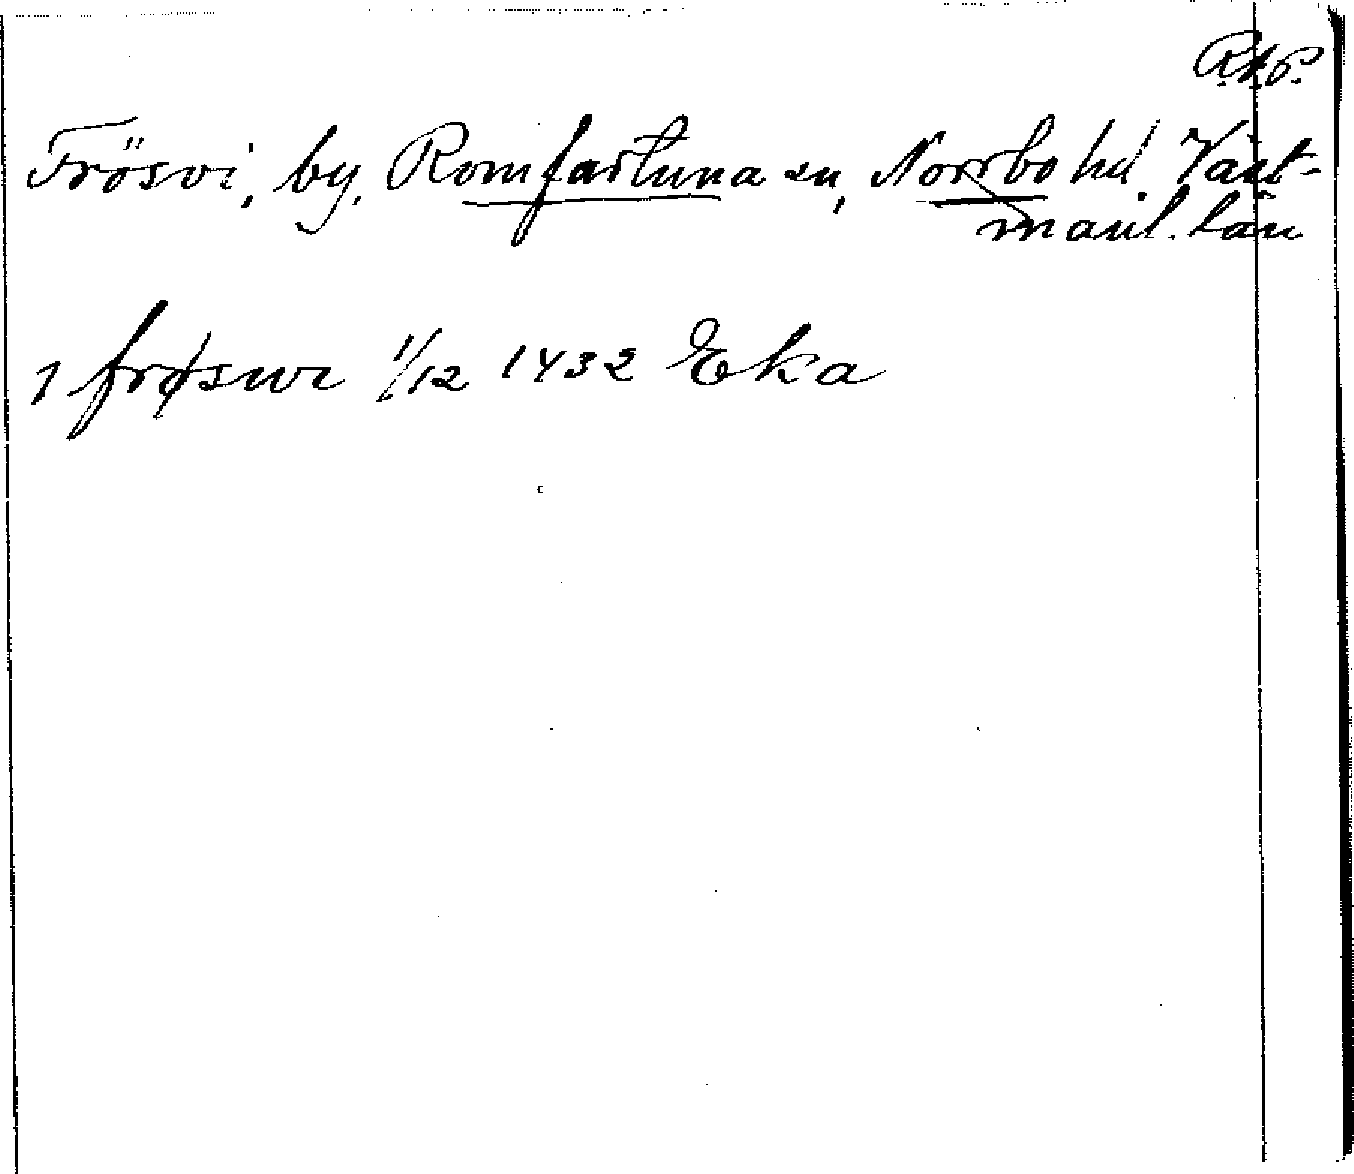 R.A.P.
Frösvi, by, Romfartuna sn, Norrbo hd, Väst-
manl. län
1 frøswi 1/12 1432 Eka